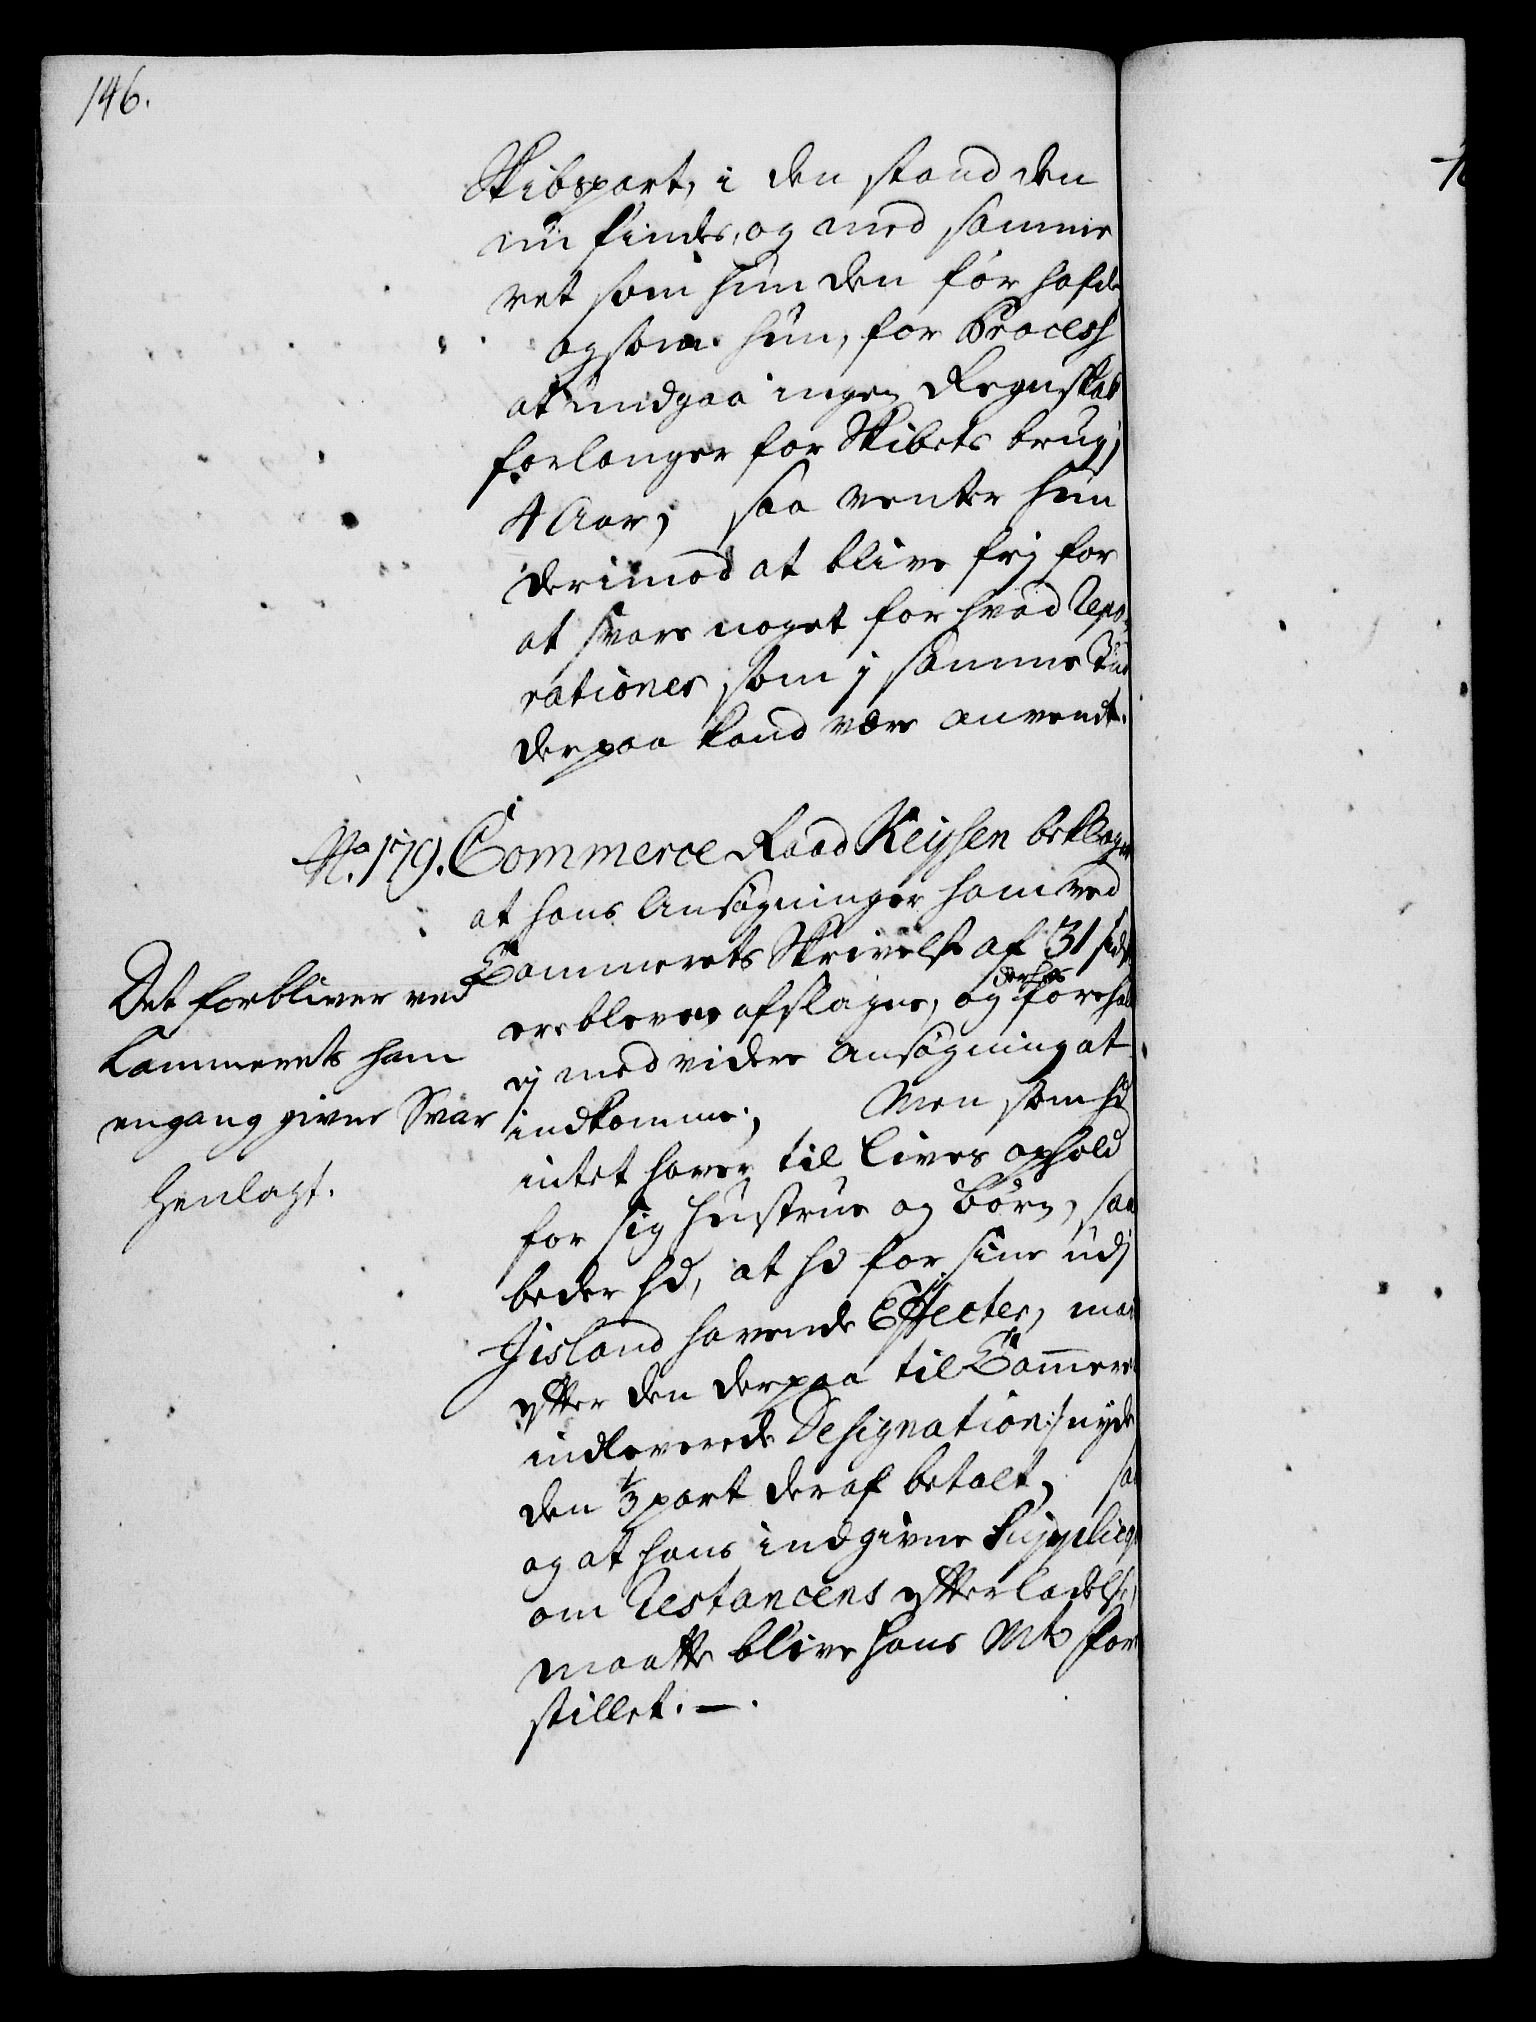 146.
Skibspart, i den stand den
nu findes, og med samme
ret som hun den før hafde
og som hun, for Process
at undgaa ingen Regnskab
forlanger for Skibets brug j
4 Aar, saa venter hun
derimod at blive frj for
at svare noget for hvad Repa-
rationer som j samme Tiid
derpaa kand være anvendt.
No. 179. Commerce Raad Keysen beklager
at hans Ansøgninger ham ved
Cammerets Skrivelse af 31 sidst
ere bleven afslagne, og derhos foreholt
ej med videre ansøgning at
indkomme; Men som hd
intet haver til Lives ophold
for sig hustrue og børn, saa
beder hd, at hd for sine udj
Jisland havende Effecter, maa
efter den derpaa til Cammeret
indleverede Designation nyde
den 1/3 part deraf betalt, saa
og at hans indgivne Suppliqve
om Restancens efterladelse,
maatte blive hans Mt: fore
stillet. —.
Det forbliver ved
Cammerets ham
engang given Svar
Henlagt.